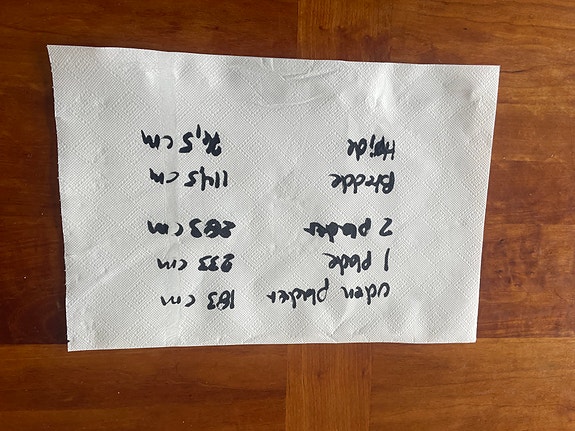 uden plader 183 cm
1 plade 233 cm
2 plader 283 cm
Bredde 114,5 cm
Højde cm